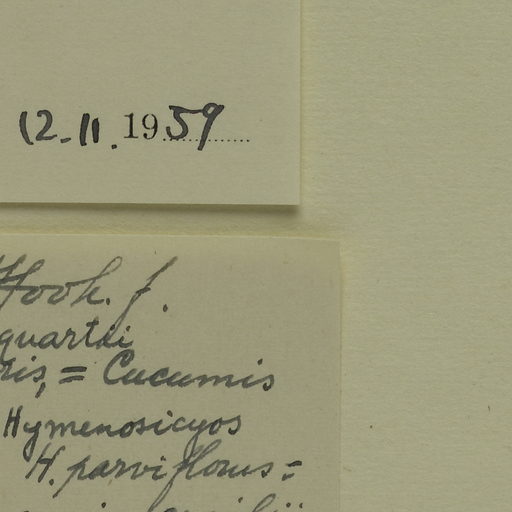 12.11.1959
Hook. f.
quartei
ris, = Cucumis
Hymenosicyos
H. parviflorus =